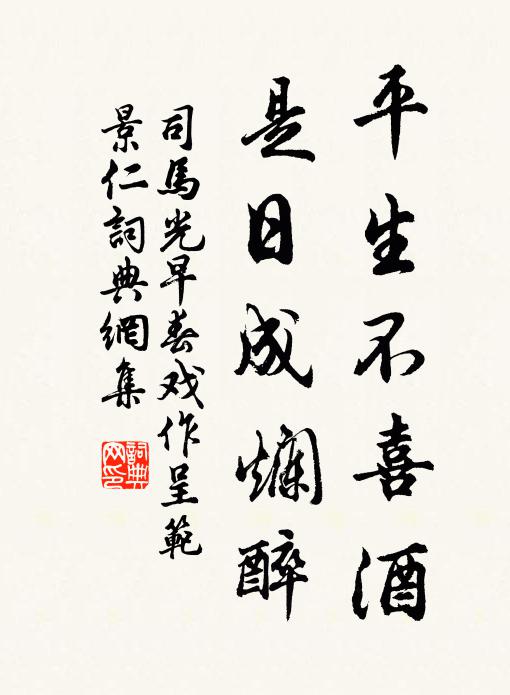 平生不喜酒
是日成爛醉
司馬光早春戏作呈範
景仁詞典網集
詞典网印